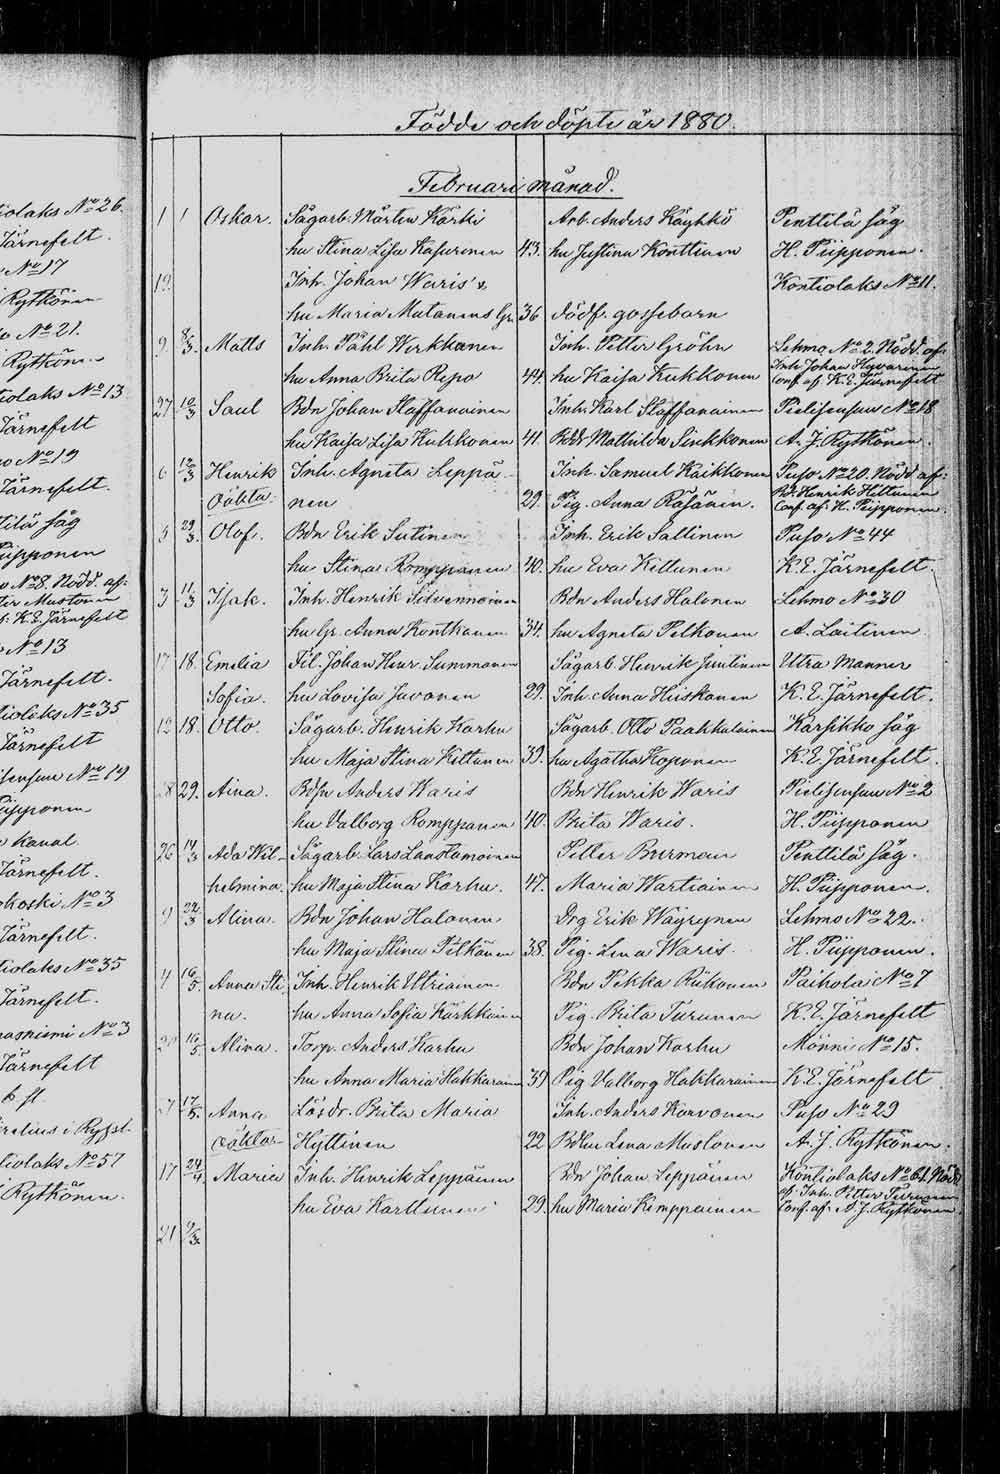 iolaks No 26.
Järnefelt.
No 17
Rytkönen
No 21.
Rytkönen
iolaks No 13
Järnefelt
No 19
Järnefelt.
tilä såg
Piipponen
No 8. Nödd. af:
ter Mustonen
f: K. E. Järnefelt
No 13
Järnefelt.
iolaks No 35
Järnefelt
isensuu No 19
Piipponen
kanal
Järnefelt.
koski No 3
Järnefelt.
iolaks No 35
Järnefelt.
No 3
Järnefelt
iolaks No 57
Rytkönen.
Födde och döpte år 1880.
Februari månad.
1 1 Oskar. Sågarb. Mårten Kärki Arb. Anders Käyhkö Penttilä såg
hu Stina Lisa Kasurinen 43. hu Justina Konttinen H. Piipponen.
12. Inh. Johan Waris's Kontiolaks No 11.
hu Maria Mutanens Gr. 36 dödf. gossebarn
9. 8/3. Matts Inh. Påhl Wirkkunen Inh. Petter Gröhn Lehmo No 2. Nödd. af:
Inh Johan Hyvärinen
hu Anna Brita Repo 44. hu Kaisa Kukkonen Conf. af K. E. Järnefelt
27 10/3 Saul Bdn Johan Staffanainen Inh. Karl Staffanainen Pielisensuu No 18
hu Kaisa Lisa Kukkonen 41. Bdh Mathilda Sinkkonen A. J. Rytkönen.
6 12/3 Henrik Inh. Agneta Leppä- Inh. Samuel Kaikkonen Puso No 20. Nödd af:
Bd. Henrik Hiltunen
oäkta. nen 29. Pig. Anna Räsänen. Conf. af: H. Piipponen
5 29/3. Olof. Bdn Erik Sutinen Inh. Erik Sallinen Puso No 44
hu Stina Romppanen 40. hu Eva Kettunen K. E. Järnefelt.
3 11/3 Isak. Inh. Henrik Silvennoinen Bdn Anders Halonen Lehmo No 30
hu Gr. Anna Kontkanen 34. hu Agneta Pelkonen A. Laitinen
17 18. Emelia Fil. Johan Henr. Summanen Sågarb. Henrik Juntinen Utra Manner
Sofia. hu Lovisa Javanen 29. Inh. Anna Huiskonen K. E. Järnefelt.
12 18. Otto. Sågarb. Henrik Karhu Sågarb. Otto Paakkalainen Karsikko såg
hu Maja Stina Kettunen 39. hu Agatha Koponen K. E. Järnefelt.
28 29. Aina. Bdsn Anders Waris Bdn Henrik Waris Pielisensuu No 2
hu Valborg Romppanen 40. Brita Waris. H. Piipponen
26 14/3 Ada Wil- Sågarb. Lars Petter Burman Penttilä såg.
helmina. hu Maja Stina Karhu. 47. Maria Wartiainen H. Piipponen.
9 22/3 Alina. Bdn Johan Halonen Drg Erik Wäyrynen Lehmo No 22.
hu Maja Stina Pitkänen 38. Pig. Lena Waris. H. Piipponen.
4 16/5. Anna Sti- Inh. Henrik Utriainen Bdn Pekka Räkönen Paihola No 7
na. hu Anna Sofia Kärkkäinen Pig. Brita Turunen K. E. Järnefelt
20 16/5. Alina. Torp. Anders Karhu Bdn Johan Karhu Mönni No 15.
hu Anna Maria Hakkarainen 39 Pig Valborg Hakkarainen K. E. Järnefelt
7 17/5. Anna Lösdr. Brita Maria Inh. Anders Korvonen Puso No 29
oäkta Hyttinen 22 Bdhu Lena Mustonen A. J. Rytkönen.
17 24/4. Maria Inh. Henrik Leppänen Bdn Johan Leppänen Kontiolaks No 61. Nödd
af: Inh. Petter Turunen
hu Eva Karttunen 29. hu Maria Kimppainen Conf. af: A. J. Rytkönen.
21 9/3.